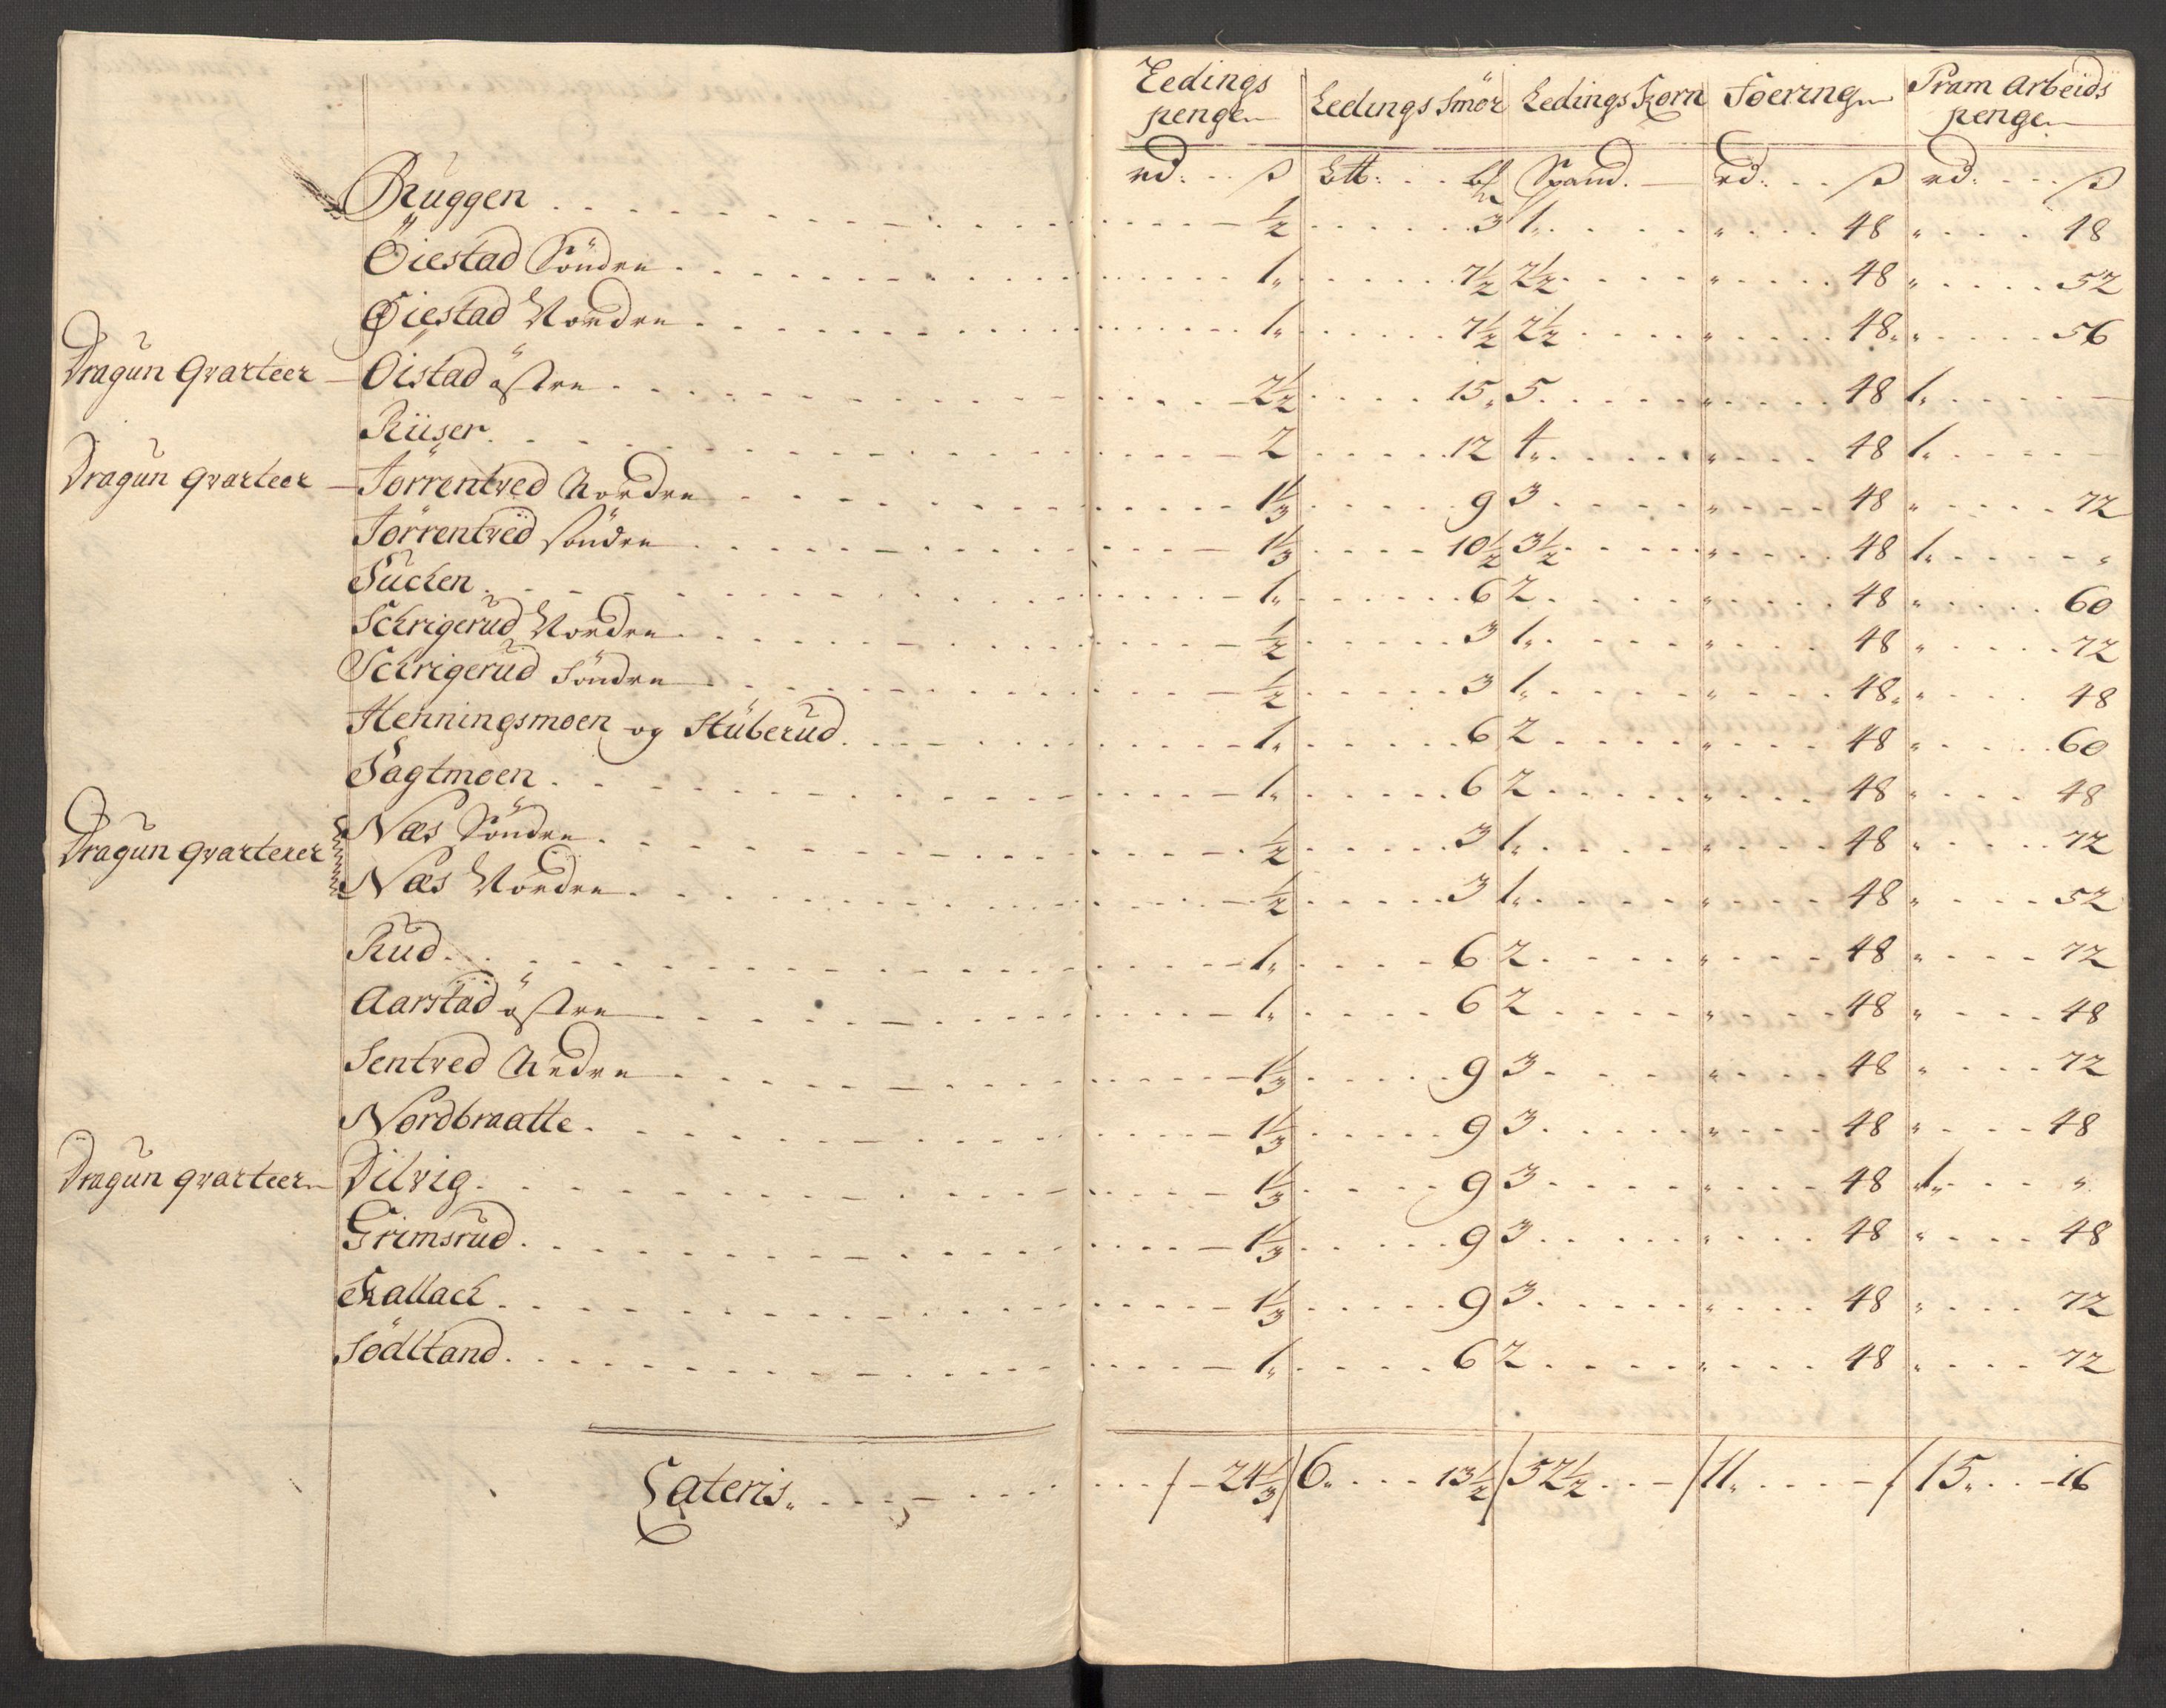 Leedings pengen Leedings Smör Ledings Korn Foering Pram Arbeids pengen
rd: ß Ltt: Spand. rd: ß rd: ß
Ruggen ½ 3 1 " 48 " 48
Öiestad Söndre 1 " 7½ 2½ " 48 " 52
Øiestad Nordre 1 " 7½ 2½ " 48 " 56
Dragun Qvarteer — Öistad östre 2½ 15 5 " 48 1 —
Riiser 2 12 4 " 48 1 -
Dragun qvarteer — Törrentved Nordre 1⅓ 9 3 " 48 " 72
Törrentved söndre 1⅓ 10½ 3½ " 48 1 "
Sucken 1 " 6 2 " 48 " 60
Schrigerud Nordre ½ 3 1 " 48 " 72
Schrigerud Söndre ½ 3 1 " 48 " 48
Henningsmoen og Stuberud 1 " 6 2 " 48 " 60
Sagtmoen 1 " 6 2 " 48 " 48
Dragun qvarterer Næs Söndre ½ 3 1 " 48 " 72
Næs Nordre ½ 3 1 " 48 " 52
Rud 1 " 6 2 " 48 " 72
Aarstad östre 1 " 6 2 " 48 " 48
Sentved Nedre 1⅓ 9 3 " 48 " 72
Nordbraatte 1⅓ 9 3 " 48 " 48
Dragun qvarteer Dilvig 1⅓ 9 3 " 48 1 "
Grimsrud 1⅓ 9 3 " 48 " 48
Kallack 1⅓ 9 3 " 48 " 72
Södltand 1 " 6 2 " 48 " 72
Lateris 24⅓ 6 13½ 52½ - 11 - 15 16